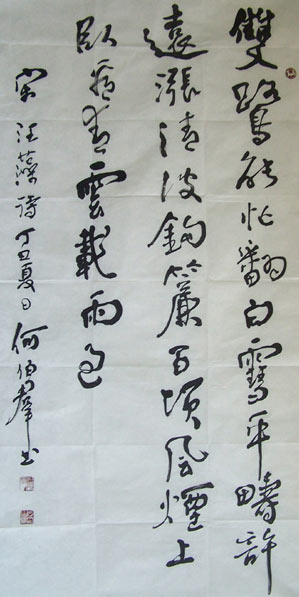 雙鷺能忙翻白雪平疇許
遠漲清波鉤簾百頃風煙上
臥看青雲載雨過
宋汪藻詩丁丑夏日何伯羣书